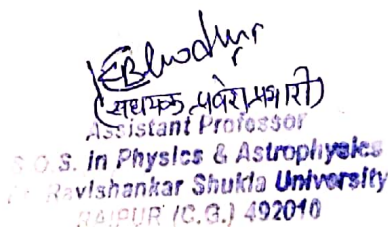 (सहायक प्रवेश प्रभारी)
Assistant Professor
S.O.S. in Physics & Astrophysics
Ravishankar Shukla University
RAIPUR (C.G.) 492010